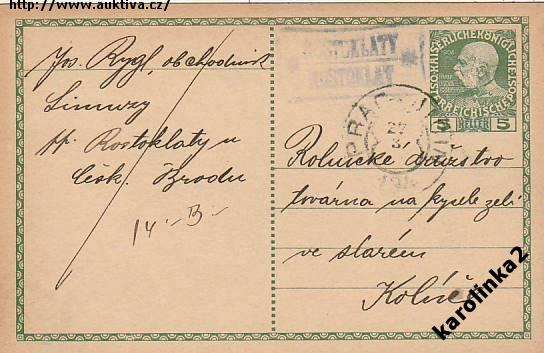 http://www.auktiva.cz/
Jos. Rygl, obchodník
Limuzy
pp. Rostoklaty u
Česk. Brodu
14.-B-
ROSTOKLATY
ROSTOKLAT
PRAG
27
3
KAISERLICHEKÖNIGLICHE
ÖSTERREICHISCHEPOST
5 HELLER 5
Rolnické družstvo
továrna na kyselé zelí
ve starém
Kolíně
karolinka2